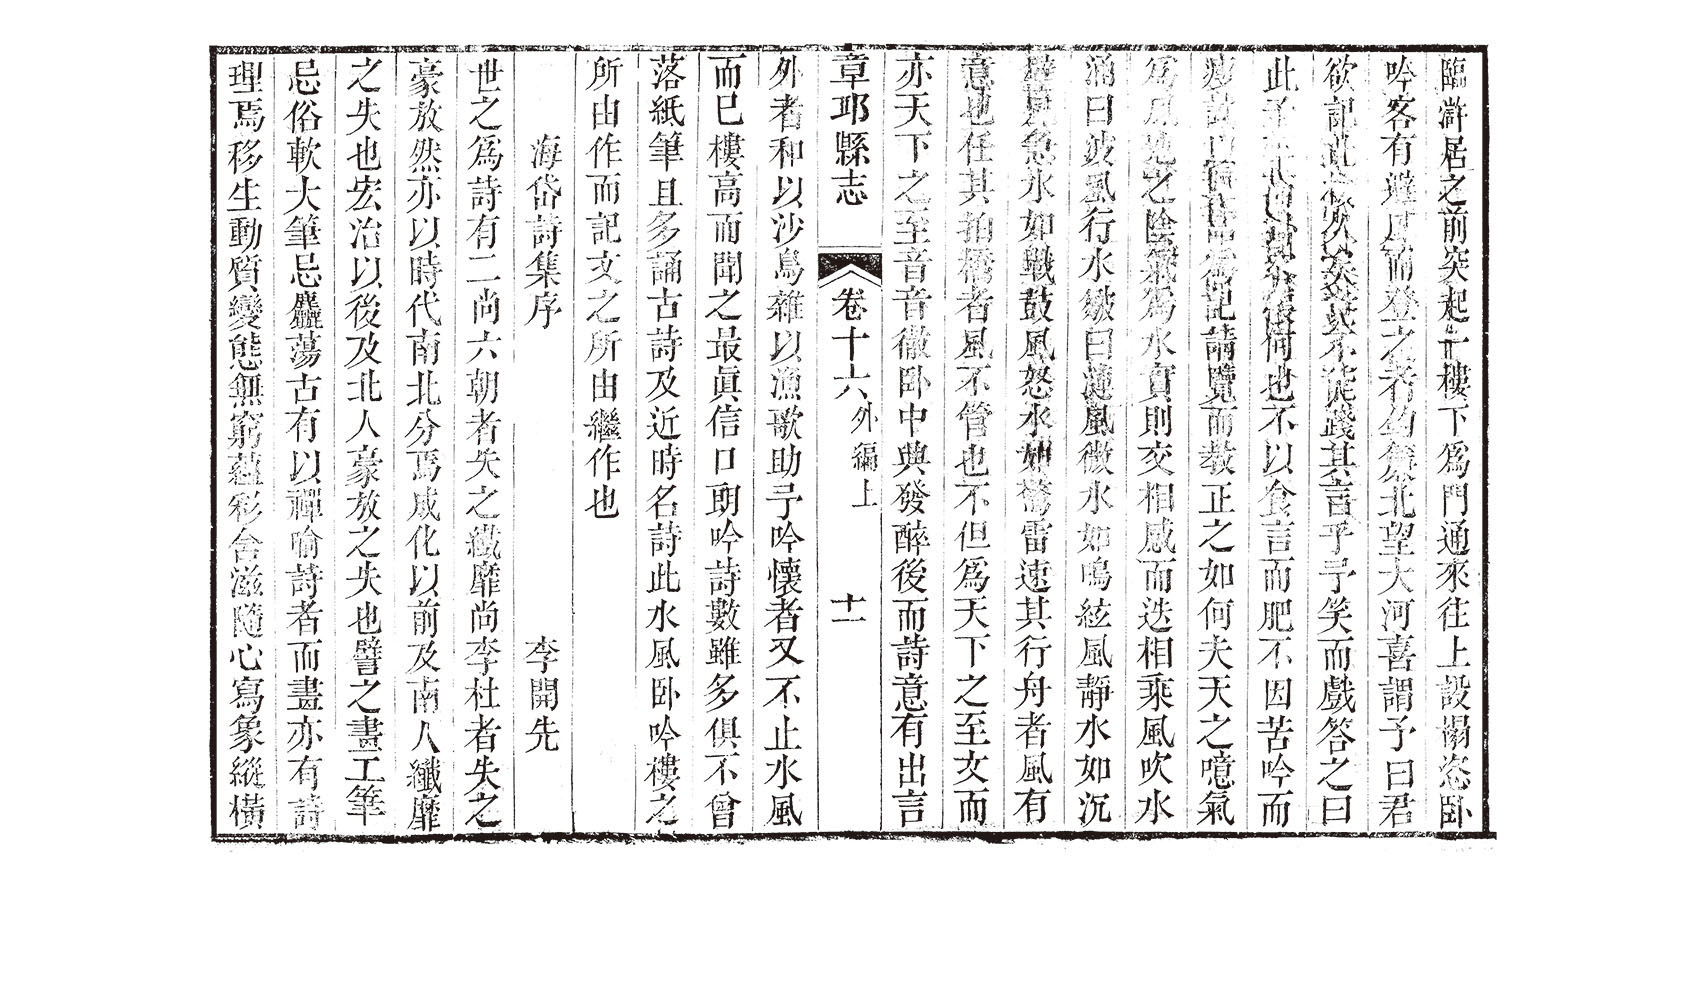 臨滸居之前突起一樓下爲門通來往上設榻恣卧
吟客有避風而登之者約舞北望大河喜謂予曰君
欲記此不從踐其言乎予笑而戲答之曰
此予何也不以食言而肥不因苦吟而
瘦記請覽而教正之如何夫天之噫氣
爲風地之陰氣爲水實則交相感而迭相乘風吹水
涌曰波風行水皺曰漣風微水如鳴絃風靜水如沉
璧風急水如戰鼓風怒水如驚雷速其行舟者風有
意也任其拍橋者風不管也不但爲天下之至文而
亦天下之至音音徹卧中典發醉後而詩意有出言
章邱縣志 卷十六外編上 十一
外者和以沙鳥雜以漁歌助予吟懷者又不止水風
而已樓高而聞之最眞信口朗吟詩數雖多俱不曾
落紙筆且多誦古詩及近時名詩此水風卧吟樓之
所由作而記文之所由繼作也
海岱詩集序 李開先
世之爲詩有二尚六朝者失之纖靡尚李杜者失之
豪放然亦以時代南北分焉成化以前及南人纖靡
之失也宏治以後及北人豪放之失也譬之畫工筆
忌俗軟大筆忌麤蕩古有以禪喻詩者而畫亦有詩
理焉移生動質變態無窮蘊彩含滋隨心寫象縱橫